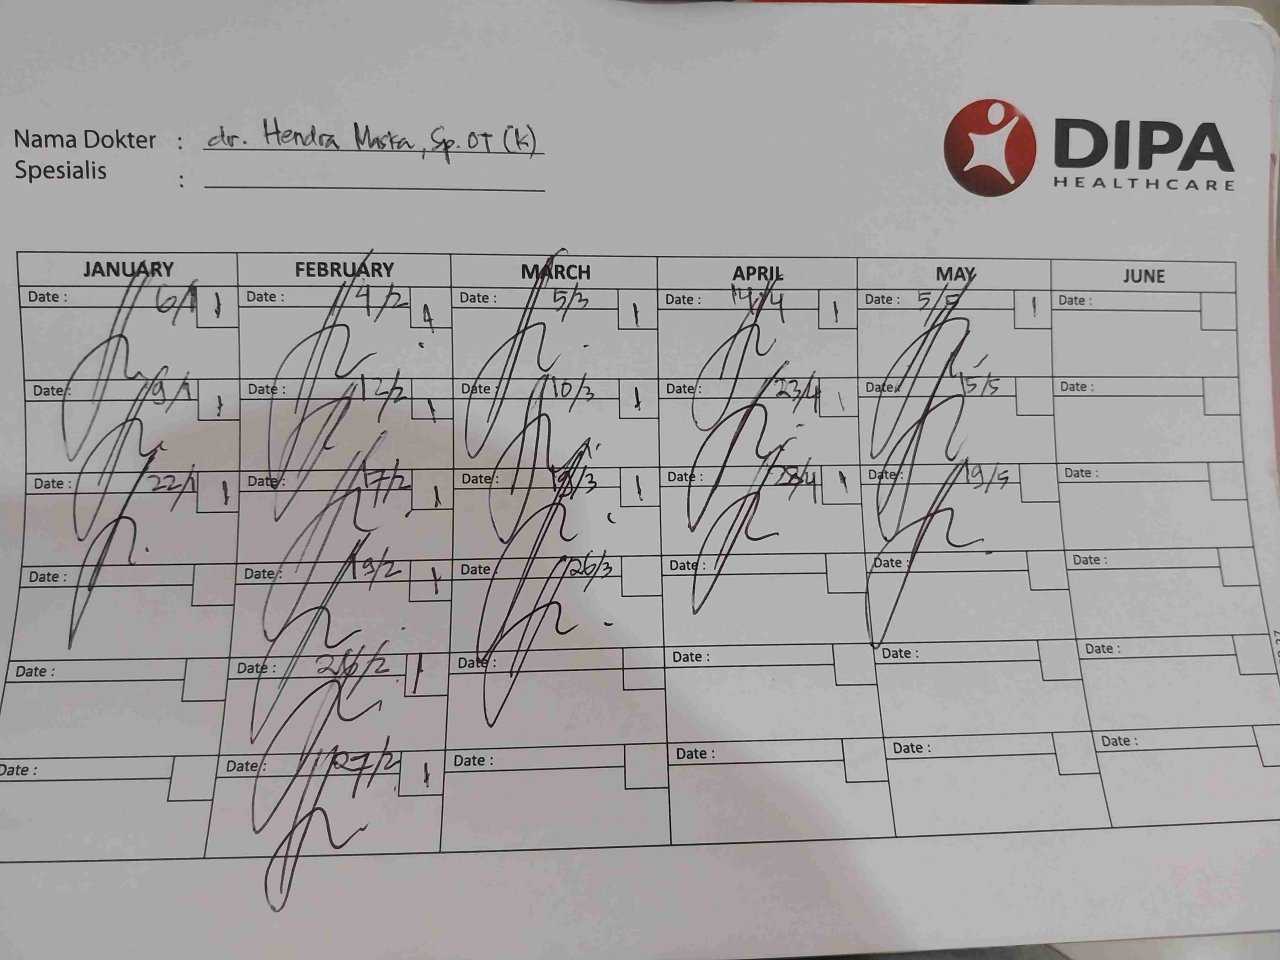 Nama Dokter : dr. Hendra Maska, Sp.OT (K)
Spesialis :
DIPA
HEALTHCARE
JANUARY FEBRUARY MARCH APRIL MAY JUNE
Date : 6/1 1 Date : 4/2 1 Date : 5/3 1 Date : 14/4 1 Date : 5/5 1 Date :
Date : 9/1 1 Date : 12/2 1 Date : 10/3 1 Date : 23/4 1 Date : 15/5 Date :
Date : 22/1 1 Date : 17/2 1 Date : 19/3 1 Date : 28/4 1 Date : 19/5 Date :
Date : Date : 19/2 1 Date : 26/3 Date : Date : Date :
Date : Date : 26/2 1 Date : Date : Date : Date :
Date : Date : 27/2 1 Date : Date : Date : Date :